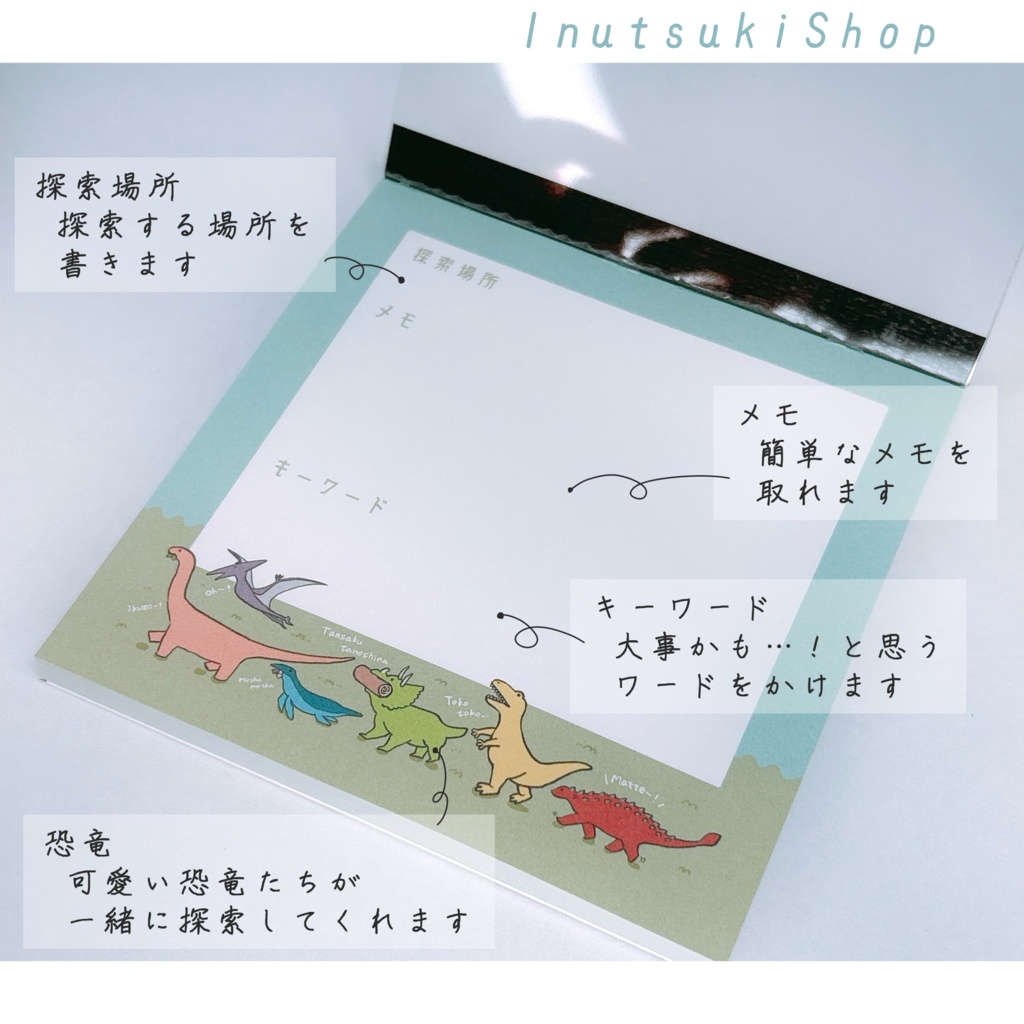 InutsukiShop
探索場所
探索する場所を
書きます
探索場所
メモ
メモ
簡単なメモを
取れます
キーワード
キーワード
大事かも…！と思う
ワードをかけます
Oh〜!
Tansaku
tanoshina
Toko
toko〜
\Matte〜!/
恐竜
可愛い恐竜たちが
一緒に探索してくれます